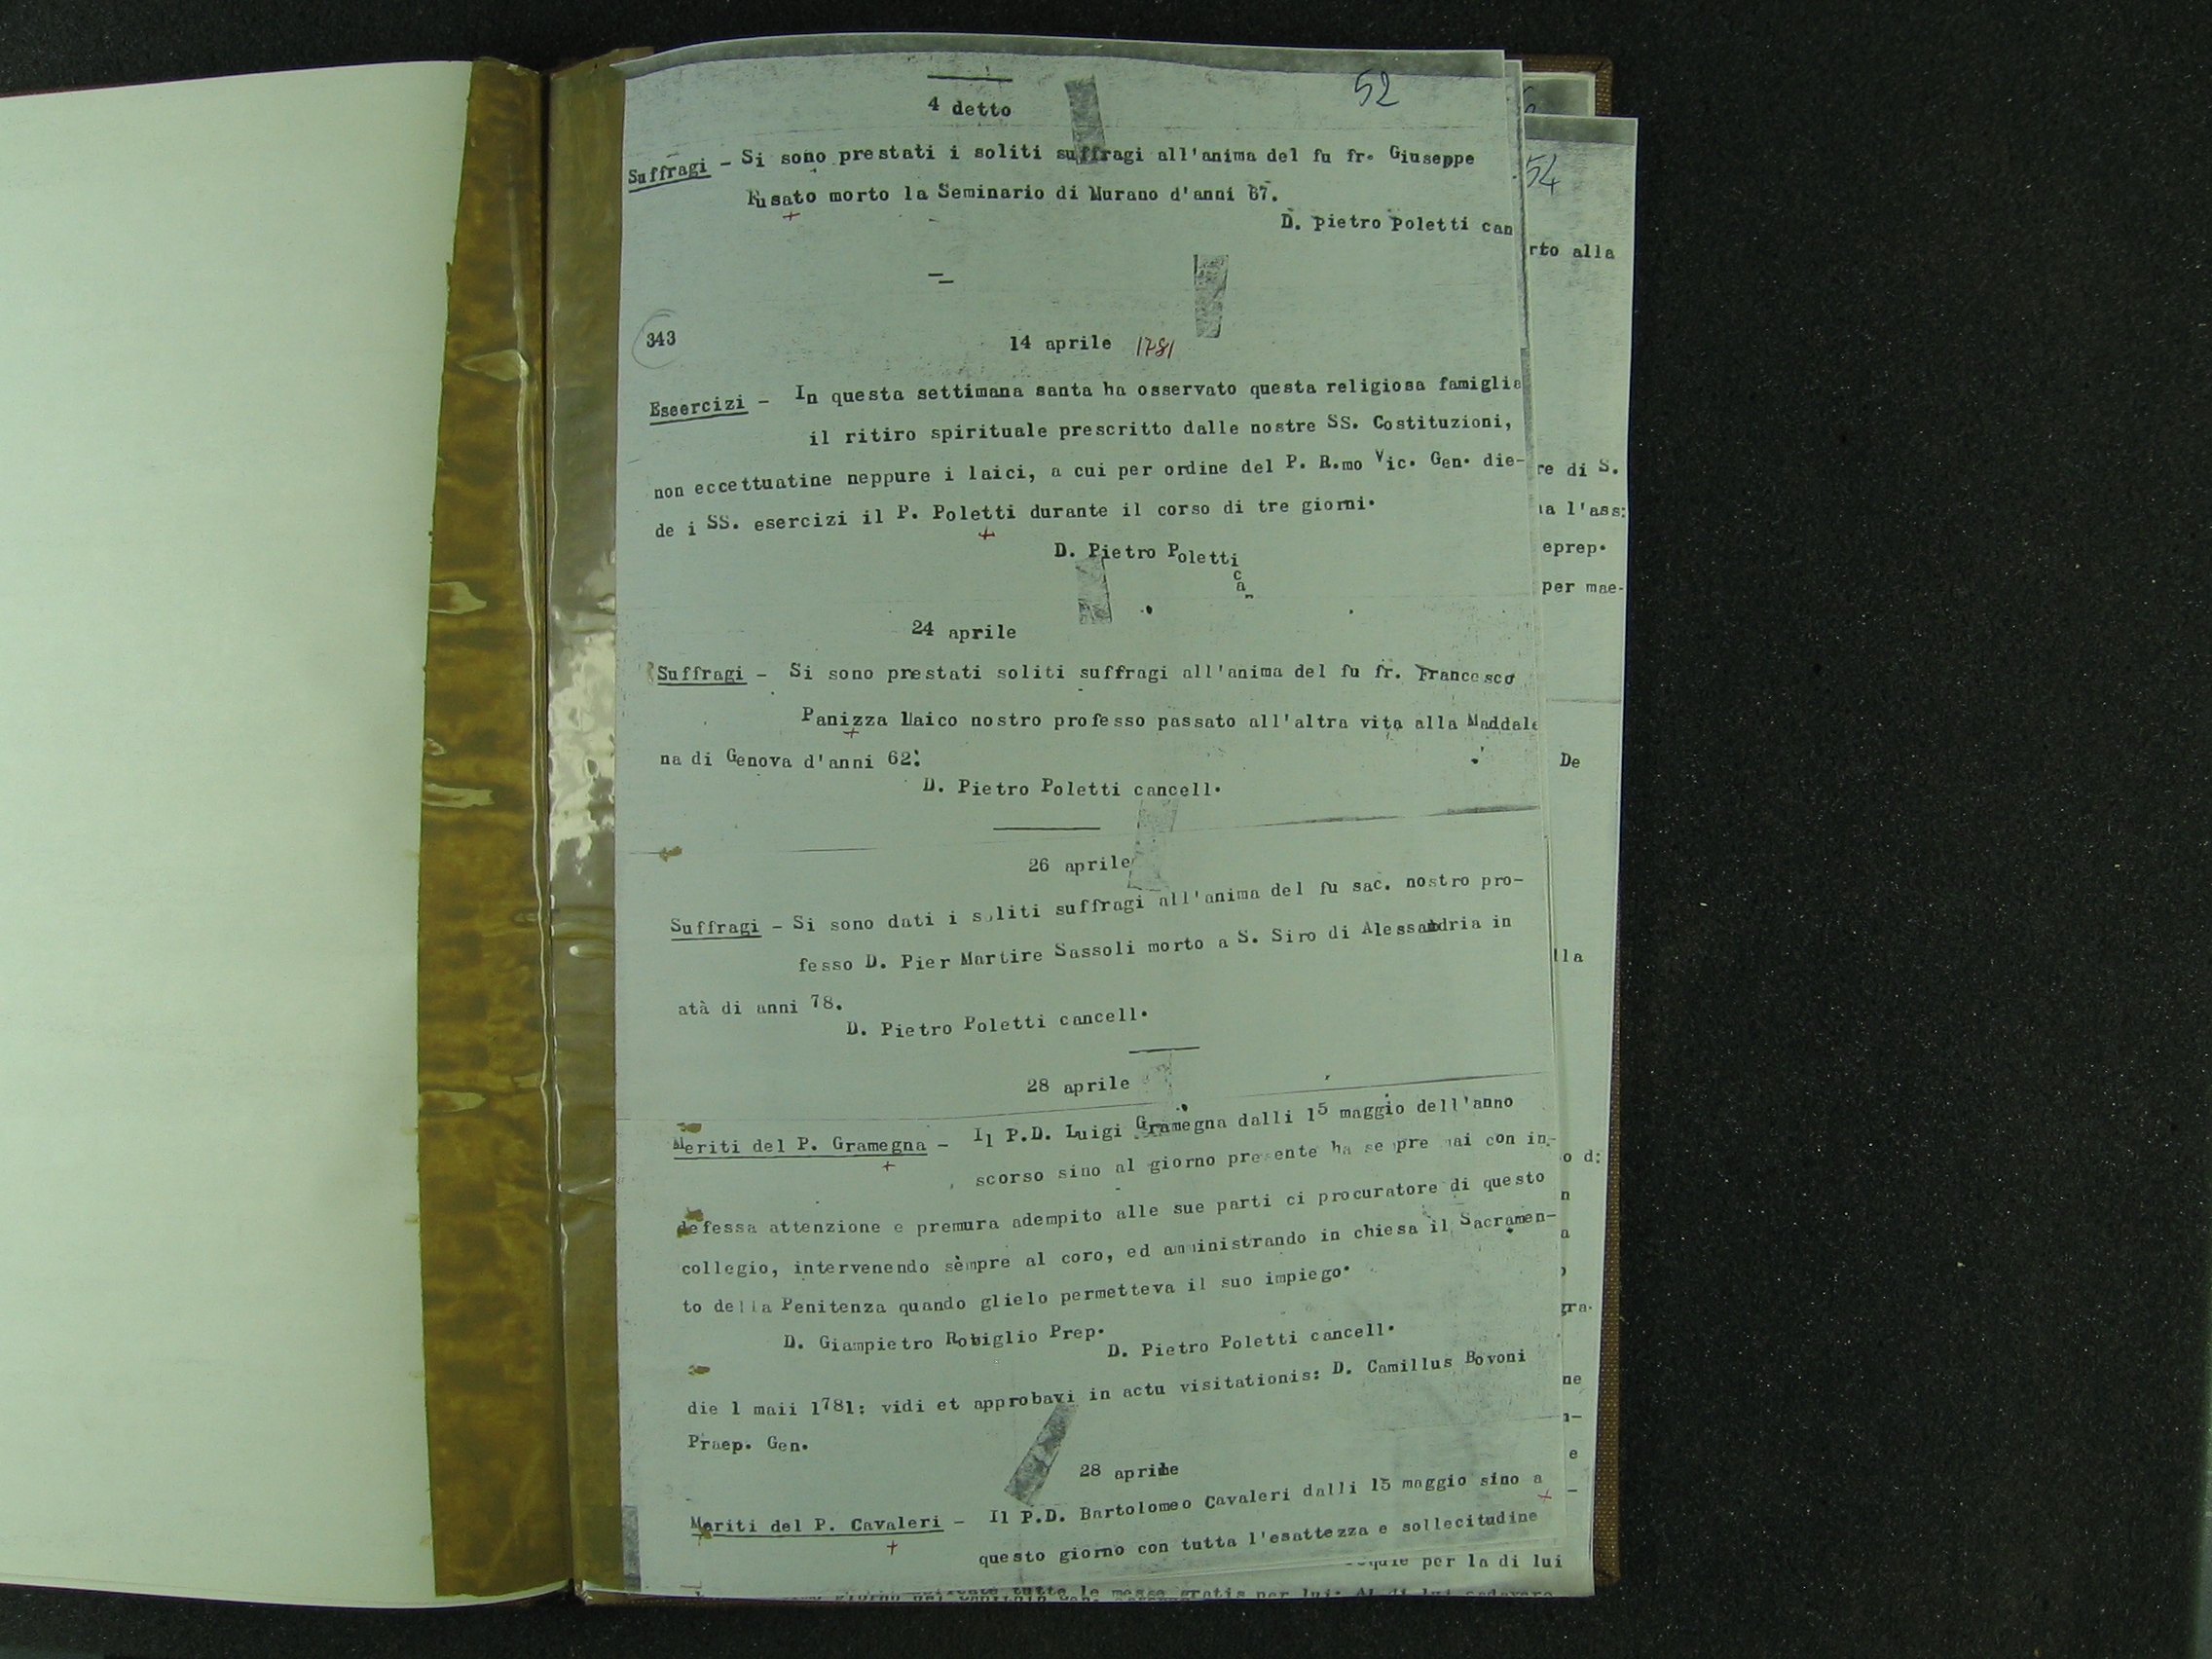 52
4 detto
Suffragi - Si sono prestati i soliti suffragi all'anima del fu fr. Giuseppe
Fusato morto la Seminario di Murano d'anni 67.
D. Pietro Poletti can
343
14 aprile 1781
Eseercizi - In questa settimana santa ha osservato questa religiosa famiglia
il ritiro spirituale prescritto dalle nostre SS. Costituzioni,
non eccettuatine neppure i laici, a cui per ordine del P. R.mo Vic. Gen. die-
de i SS. esercizi il P. Poletti durante il corso di tre giorni.
D. Pietro Poletti
ca
24 aprile
Suffragi - Si sono prestati soliti suffragi all'anima del fu fr. Francesco
Panizza laico nostro professo passato all'altra vita alla Maddale
na di Genova d'anni 62.
D. Pietro Poletti cancell.
26 aprile
Suffragi - Si sono dati i soliti suffragi all'anima del fu sac. nostro pro-
fesso D. Pier Martire Sassoli morto a S. Siro di Alessandria in
atà di anni 78.
D. Pietro Poletti cancell.
28 aprile
Meriti del P. Gramegna - Il P.D. Luigi Gramegna dalli 15 maggio dell'anno
scorso sino al giorno presente ha sempre mai con in-
defessa attenzione e premura adempito alle sue parti ci procuratore di questo
collegio, intervenendo sèmpre al coro, ed amministrando in chiesa il Sacramen-
to della Penitenza quando glielo permetteva il suo impiego.
D. Giampietro Robiglio Prep.
D. Pietro Poletti cancell.
die 1 maii 1781: vidi et approbavi in actu visitationis: D. Camillus Bovoni
Praep. Gen.
28 aprile
Meriti del P. Cavaleri - Il P.D. Bartolomeo Cavaleri dalli 15 maggio sino a
questo giorno con tutta l'esattezza e sollecitudine
54
rto alla
re di S.
na l'ass:
eprep.
per mae-
De
lla
o d:
gra.
ne
e
per la di lui
tutte le messe gratis per lui: Al di lui cadavere